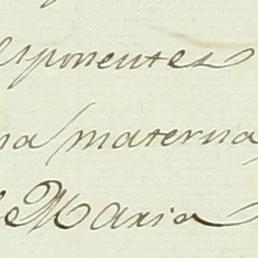 esponentes
na materna
de Maria